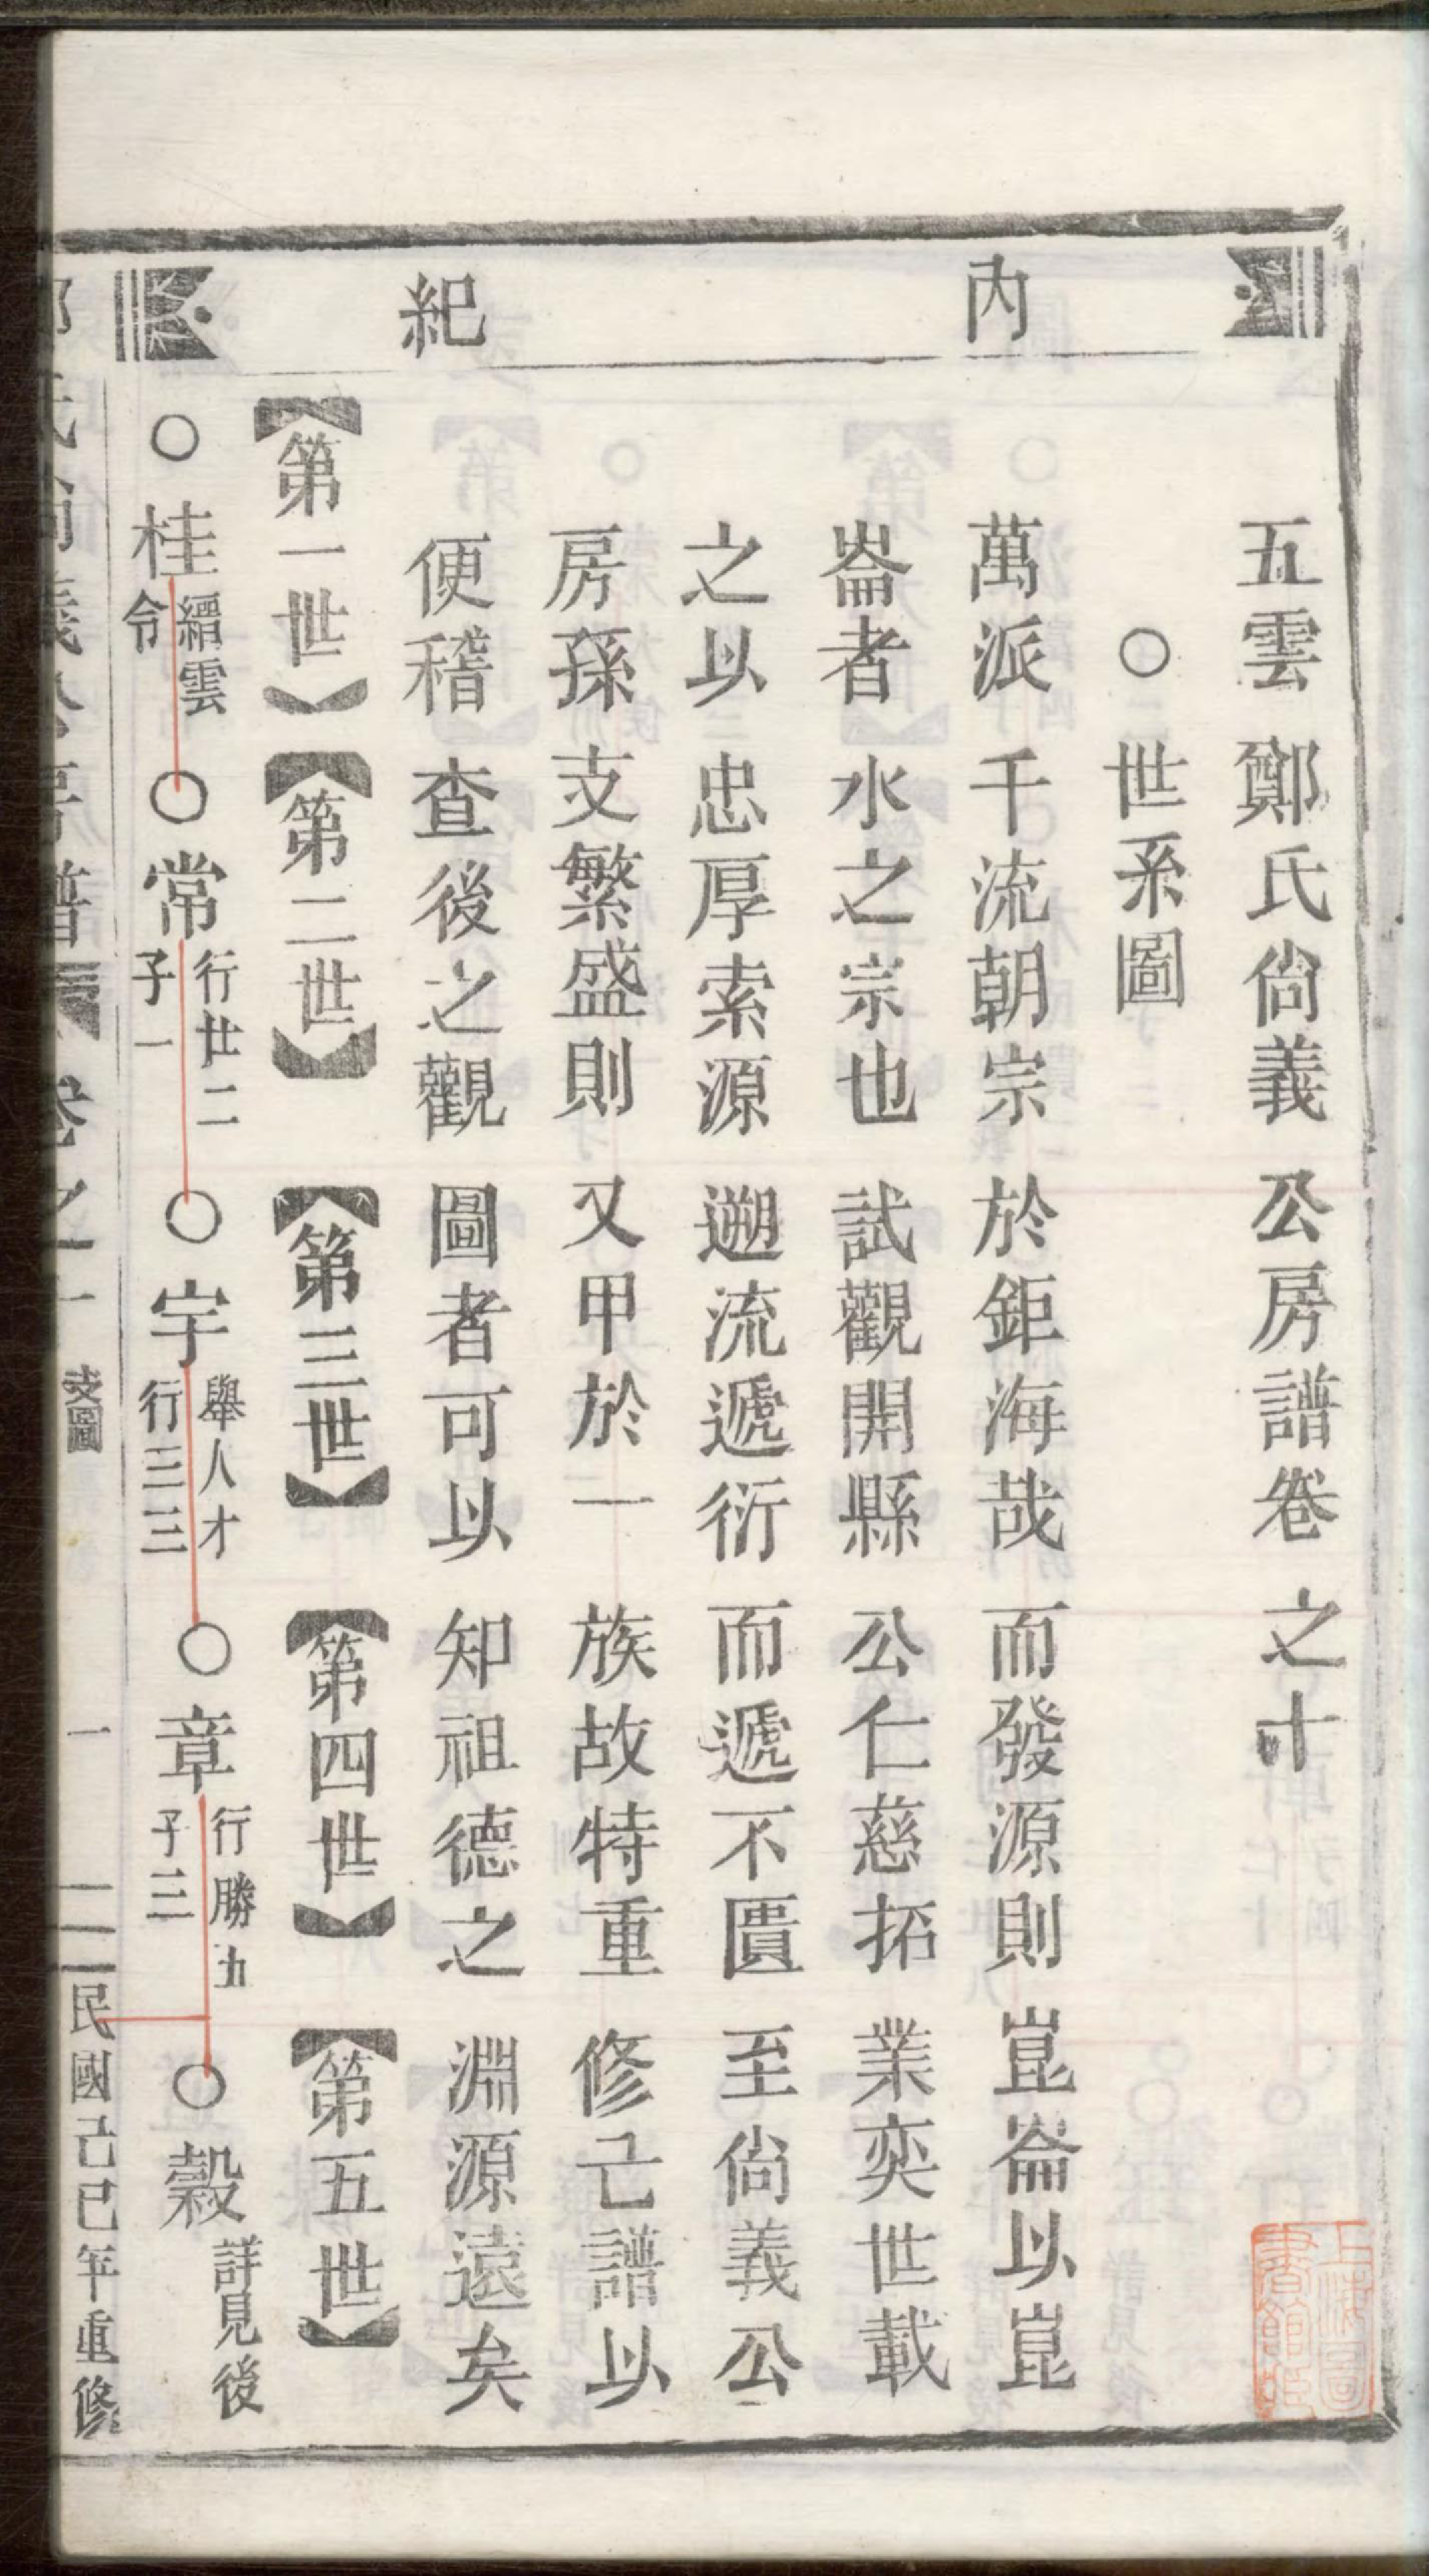 內
紀
五雲鄭氏尙義公房譜卷之十
○世系圖
萬派千流朝宗於鉅海哉而發源則崑崙以崑
崙者水之宗也試觀開縣公仁慈拓業奕世載
之以忠厚索源遡流遞衍而遞不匱至尙義公
房孫支繁盛則又甲於一族故特重修己譜以
便稽查後之觀圖者可以知祖德之淵源遠矣
【第一世】【第二世】【第三世】【第四世】【第五世】
○桂縉雲令○常行廿二子一○宇舉人才行三三○章行勝九子三○穀詳見後
氏尙義公房譜 卷之十 支圖 一 民國己巳年重修